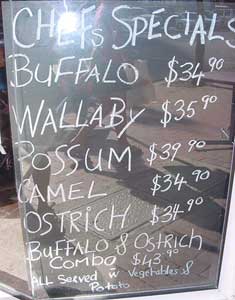 CHEFS SPECIALS
BUFFALO $34.90
WALLABY $35.90
POSSUM $39.90
CAMEL $34.90
OSTRICH $34.90
BUFFALO & OSTRICH
COMBO $43.90
ALL Served w Vegetables &
Potato